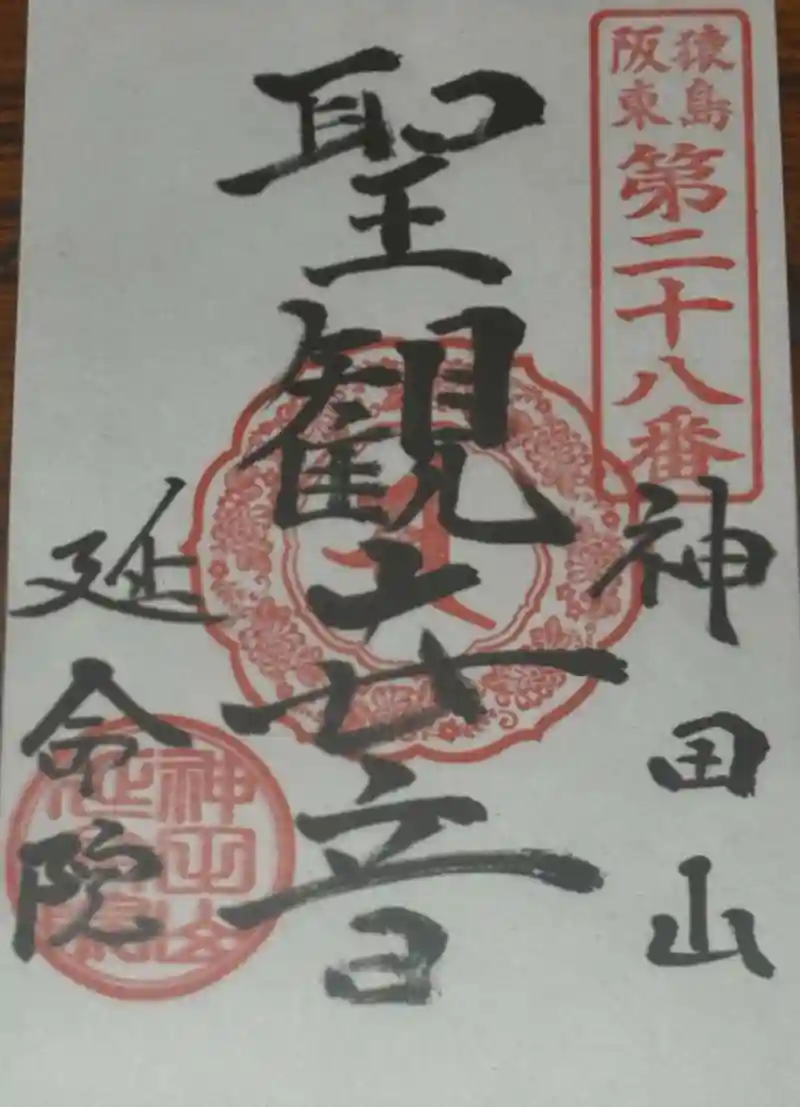 猿島
阪東
第二十八番
神田山
聖観世音
延命院
神田山
延命院